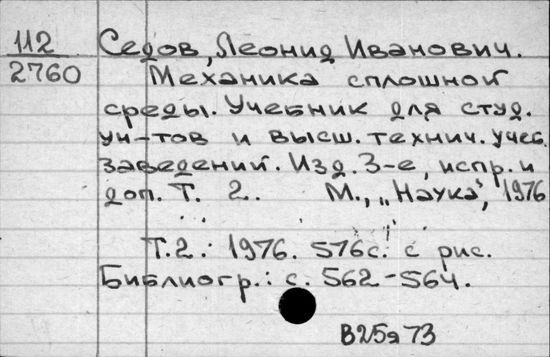 112 Седов, Леонид Иванович.
2760 Механика сплошной
среды. Учебник для студ.
ун-тов и высш. технич. учеб.
заведений. Изд. 3-е, испр. и
доп. Т. 2. М., „Наука", 1976
Т.2.: 1976. 576с. с рис.
Библиогр.: с. 562-564.
В25я73